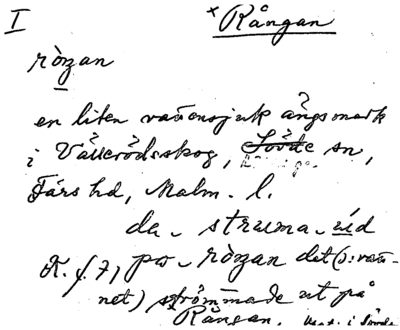 I
× Rångan
ròŋan
en liten vattensjuk ångsmark
i Vätterödsskog, Sövde sn,
Färs hd, Malm. l.
da struma ud
på ròŋan det (ɔ: vatt-
net) strömmade ut på
Rångan.